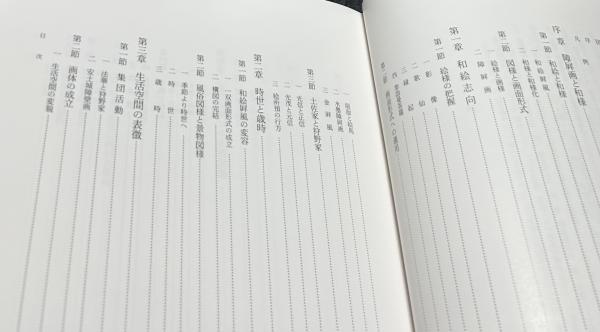 目次
凡例
序章 障屏画と和様
第一節 和絵と和様
一 和絵屏風
二 和様と和様化
第二節 図様と画面形式
一 絵様と画様
二 障屏画
第一章 和絵志向
第一節 絵様の把握
一 影像
二 歌仙
三 縁起
第二節
一
二 水墨障屏画
三 金屏風
第三節 土佐家と狩野家
一 光信と正信
二 光茂と元信
三 絵所預の行方
第二章 時世と歳時
第一節 和絵屏風の変容
一 一双画面形式の成立
二 構図の完結
第二節 風俗図様と景物図様
一 季節より時世へ
二 時世
三 歳時
第三章 生活空間の表徴
第一節 集団活動
一 法華と狩野家
二 安土城障壁画
第二節 画体の成立
一 生活空間の変貌
目次